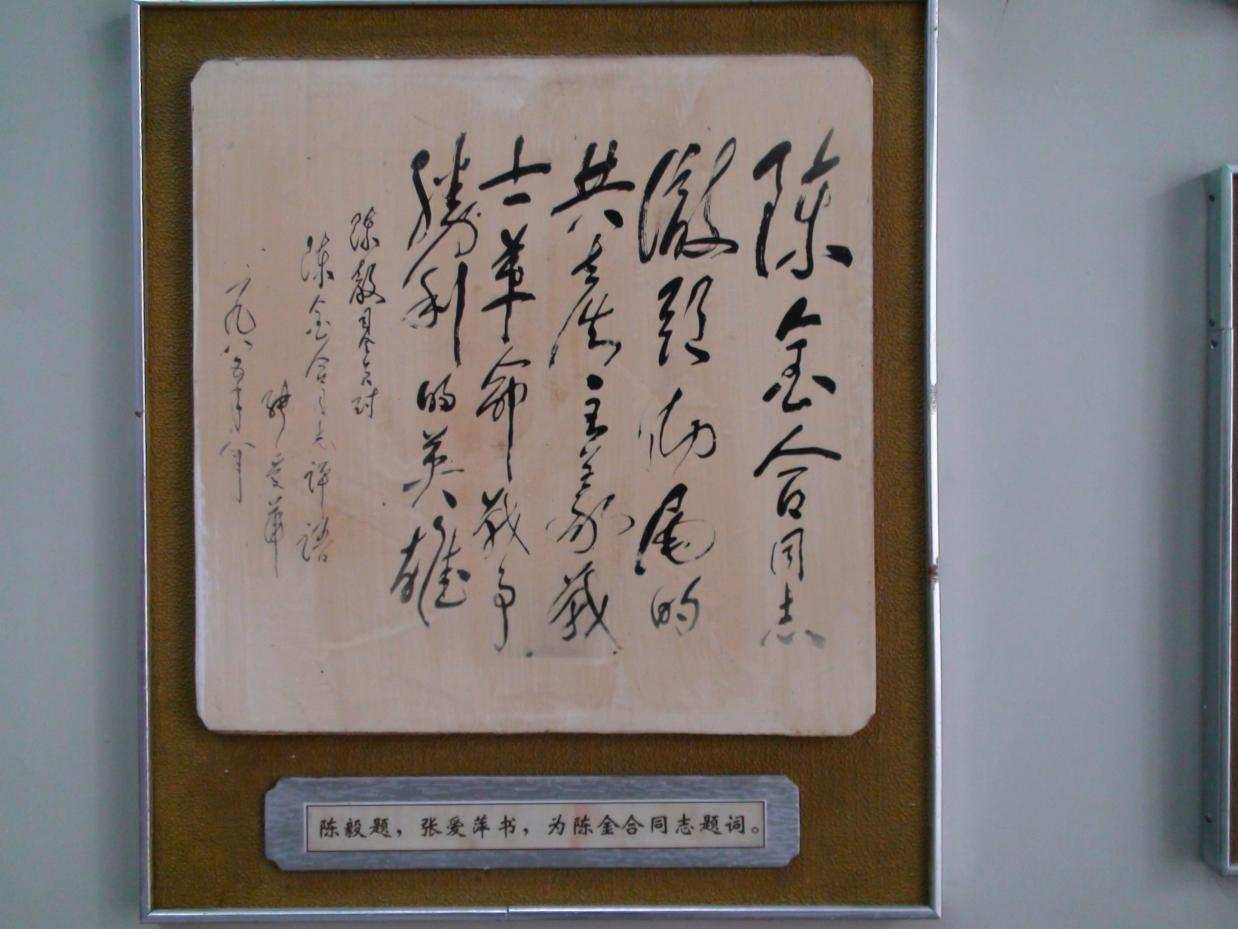 陈金合同志
澈頭徹尾的
共产主义战
士革命战争
勝利的英雄
陈毅同志对
陈金合同志评语
张爱萍
一九八五年八月
陈毅题，张爱萍书，为陈金合同志题词。